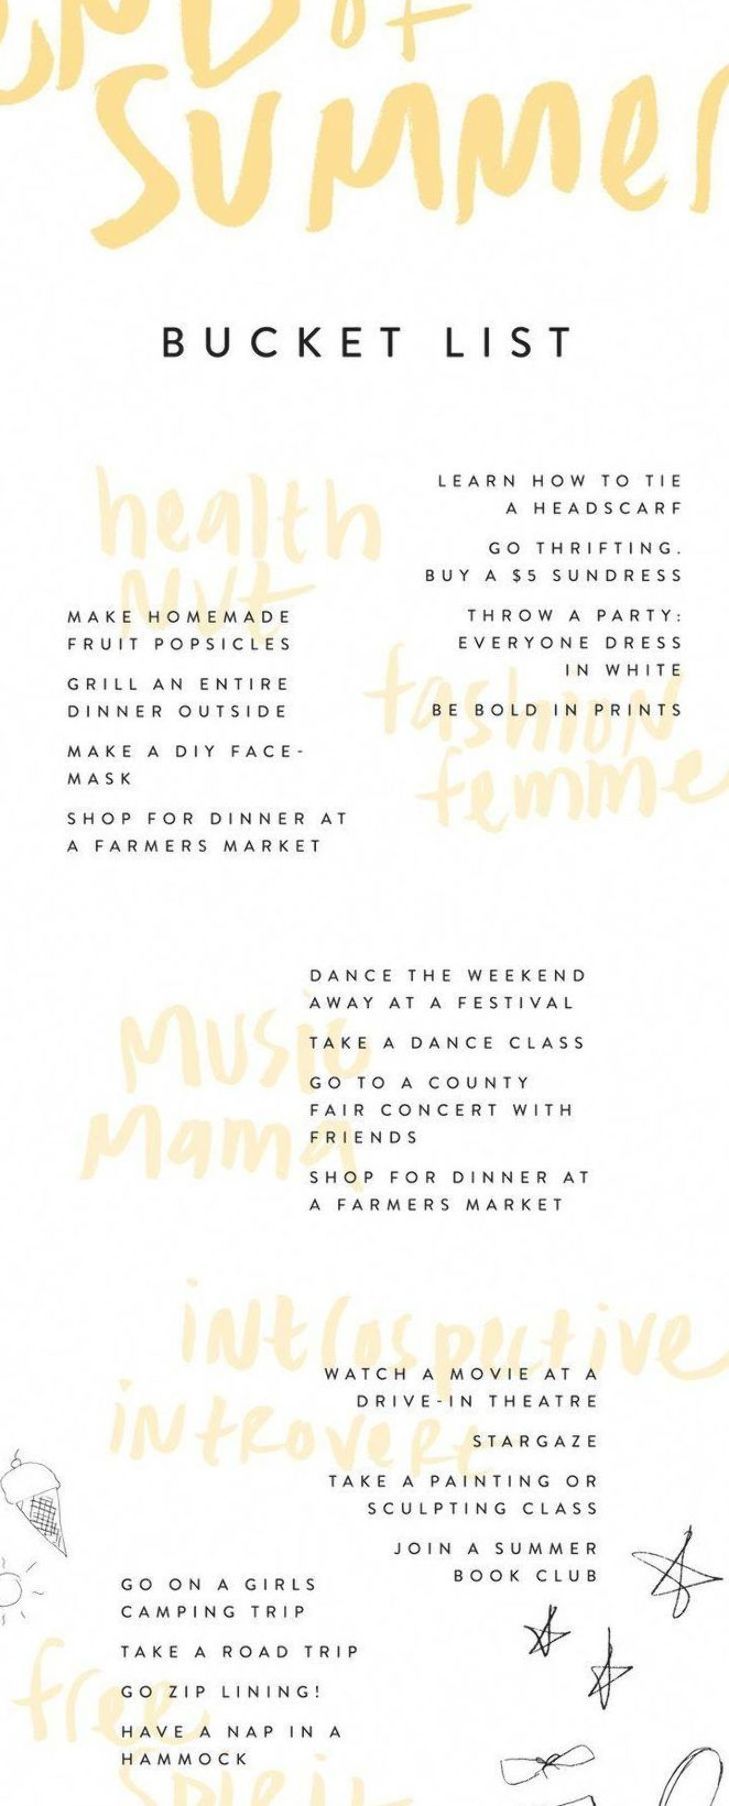 END of
SUMMER
BUCKET LIST
health
Nut
MAKE HOMEMADE
FRUIT POPSICLES
GRILL AN ENTIRE
DINNER OUTSIDE
MAKE A DIY FACE-
MASK
SHOP FOR DINNER AT
A FARMERS MARKET
LEARN HOW TO TIE
A HEADSCARF
GO THRIFTING.
BUY A $5 SUNDRESS
THROW A PARTY:
EVERYONE DRESS
IN WHITE
BE BOLD IN PRINTS
fashion
femme
Music
Mama
DANCE THE WEEKEND
AWAY AT A FESTIVAL
TAKE A DANCE CLASS
GO TO A COUNTY
FAIR CONCERT WITH
FRIENDS
SHOP FOR DINNER AT
A FARMERS MARKET
introspective
introvert
WATCH A MOVIE AT A
DRIVE-IN THEATRE
STARGAZE
TAKE A PAINTING OR
SCULPTING CLASS
JOIN A SUMMER
BOOK CLUB
GO ON A GIRLS
CAMPING TRIP
TAKE A ROAD TRIP
GO ZIP LINING!
HAVE A NAP IN A
HAMMOCK
free
spirit